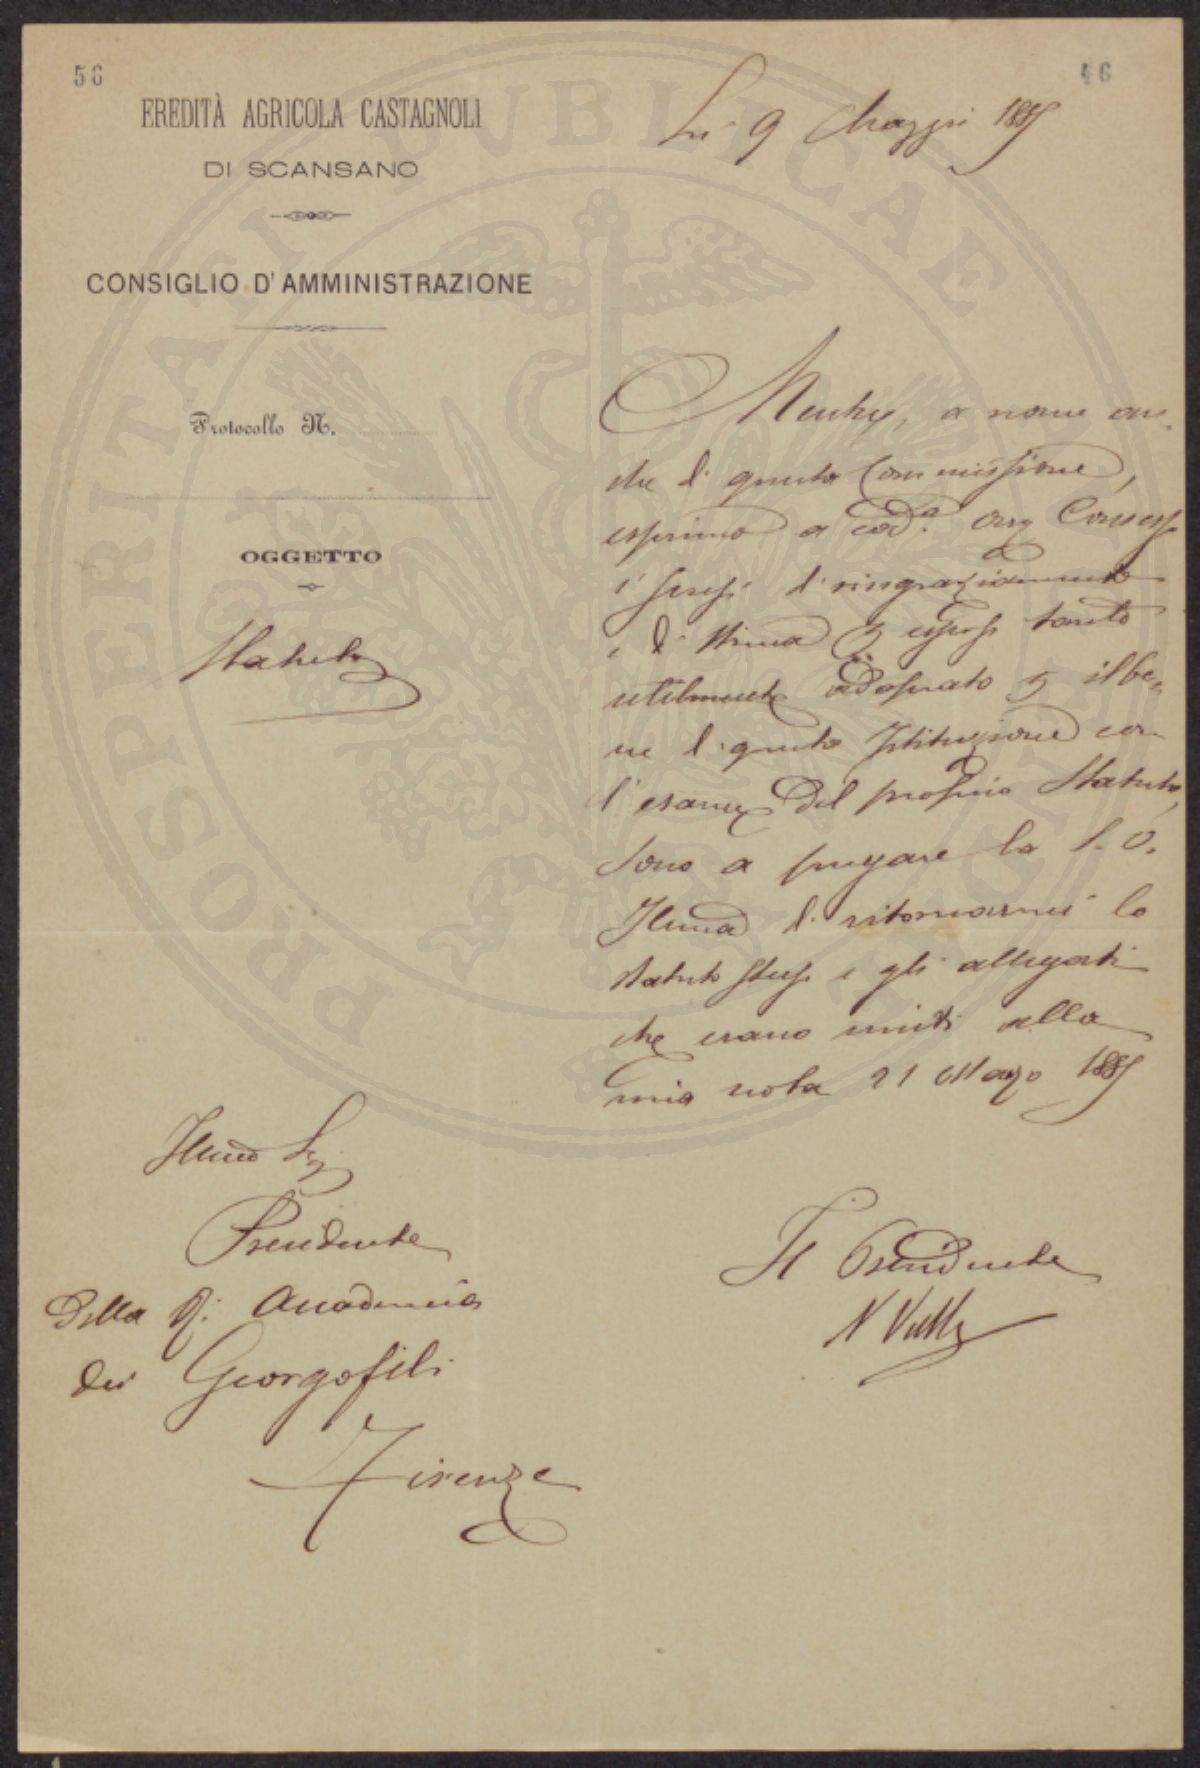 56
46
EREDITÀ AGRICOLA CASTAGNOLI
DI SCANSANO
CONSIGLIO D'AMMINISTRAZIONE
Protocollo N.
OGGETTO
Statuto
Li 9 Maggio 1885
Mentre, a nome an-
che di questa Commissione,
esprimo a cod.a On
i sensi di ringraziamento
e di stima
utilmente adoperato il be-
ne di questa Istituzione con
l'esame del proprio Statuto,
sono a pregare la S. V.
Illma di ritornarmi lo
statuto stesso e gli allegati
che erano uniti alla
mia nota 21 Marzo 1885
Il Presidente
N Valle
Illmo Sig
Presidente
della R. Accademia
dei Georgofili
Firenze
PROSPERITATI PUBLICAE